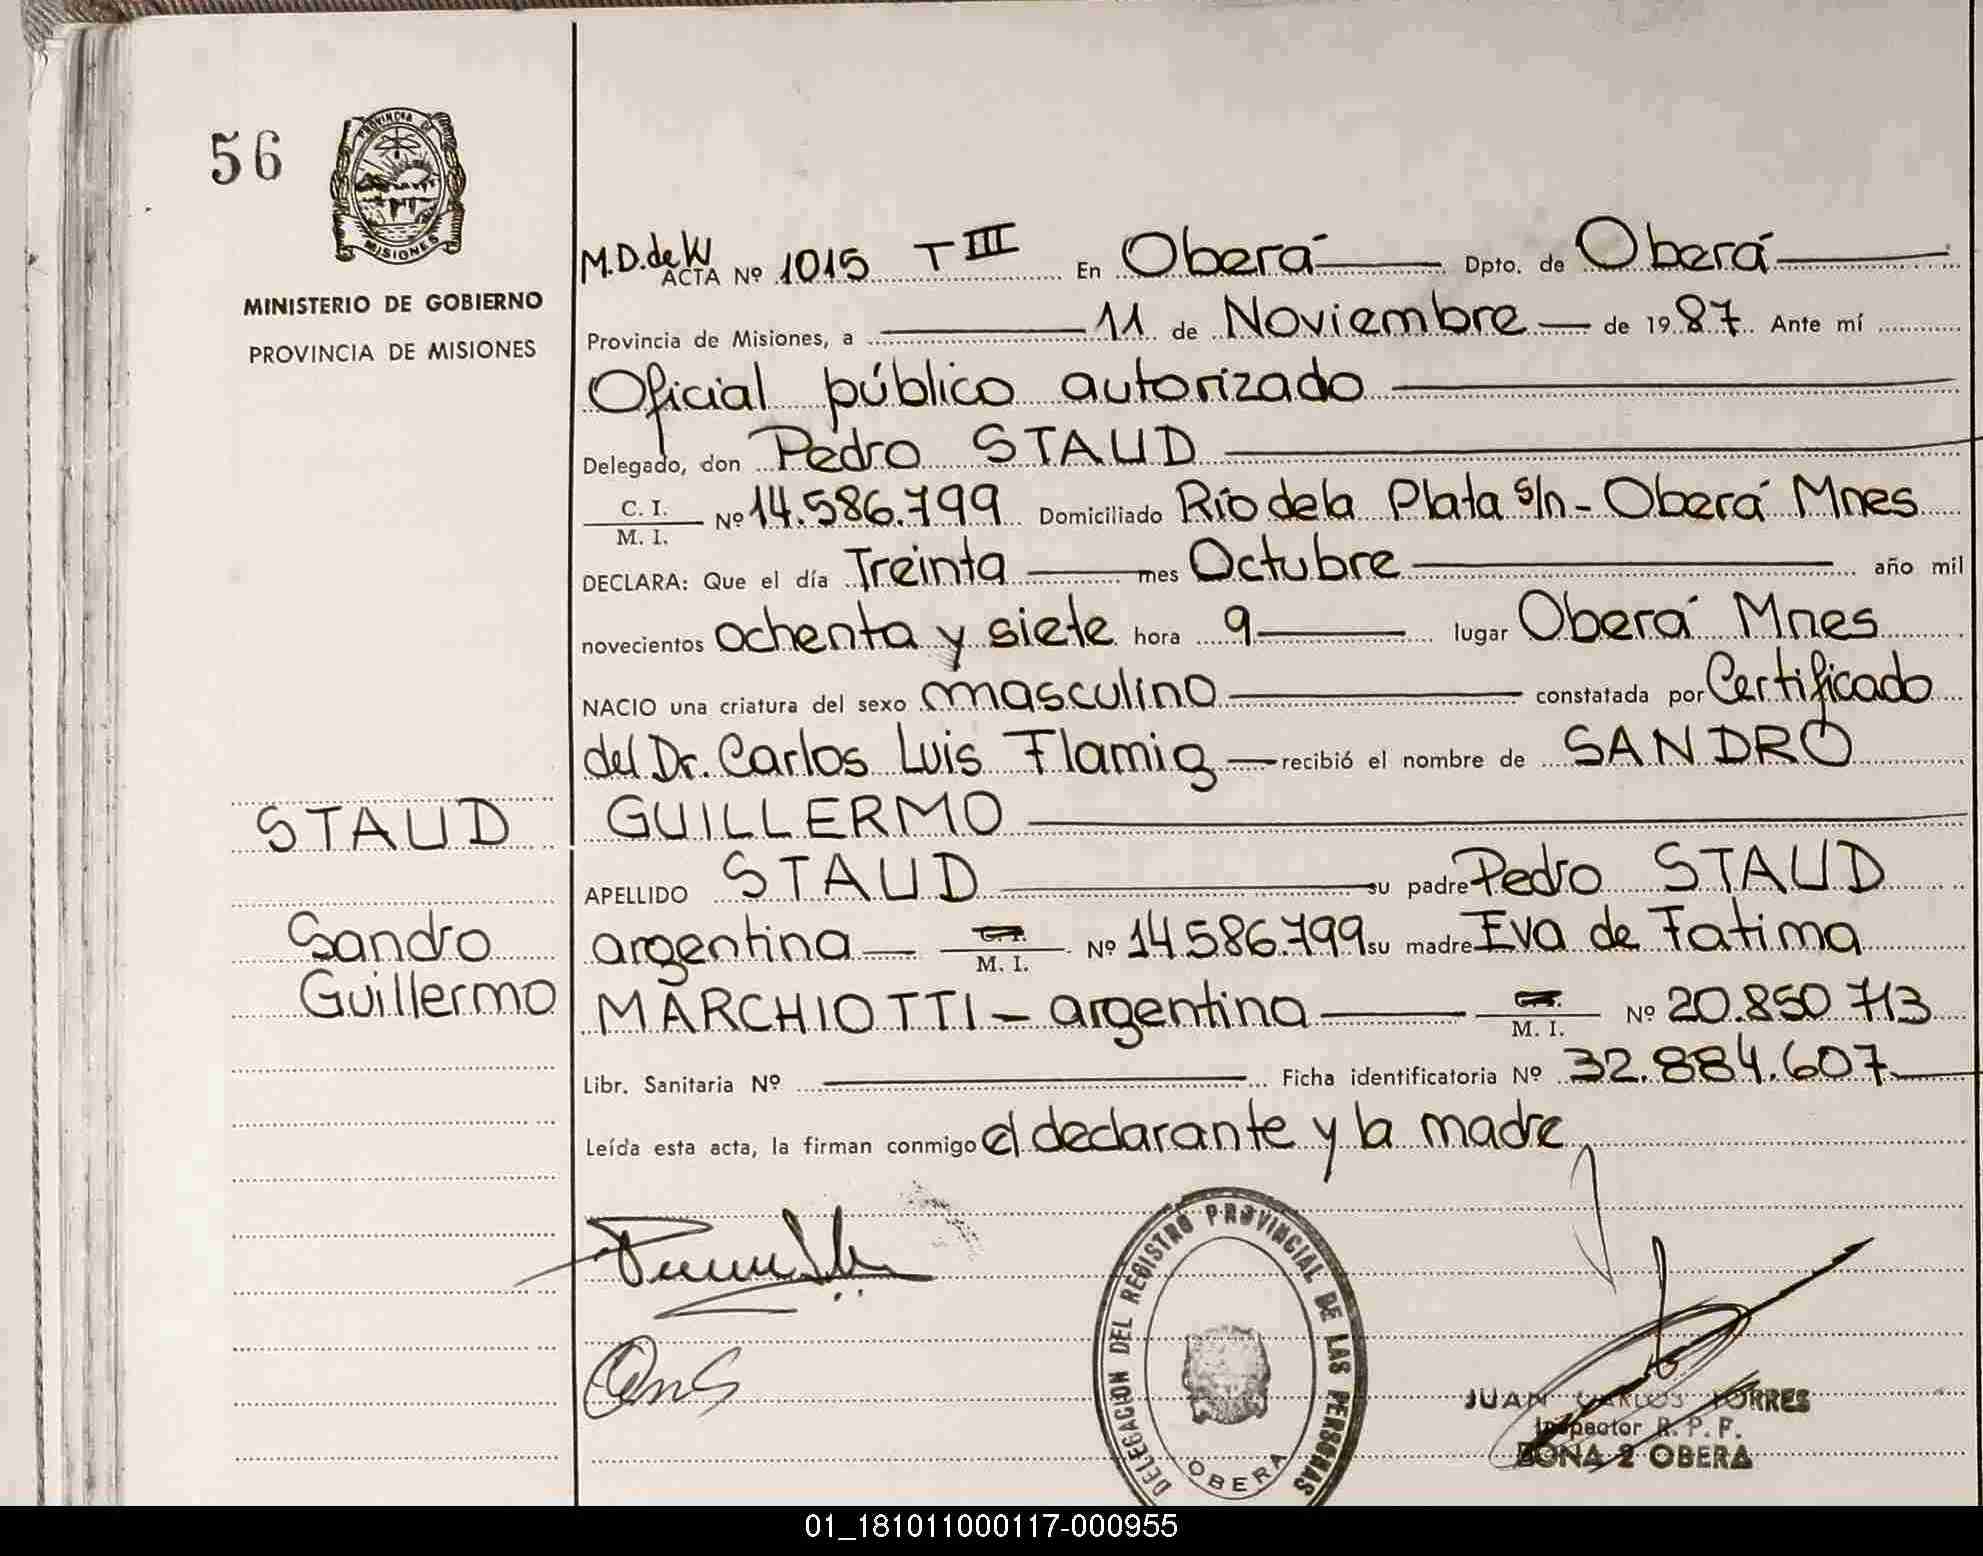 56
PROVINCIA DE
MISIONES
MINISTERIO DE GOBIERNO
PROVINCIA DE MISIONES
STAUD
Sandro
Guillermo
M.D.de W
ACTA Nº 1015 T III En Oberá Dpto. de Oberá
Provincia de Misiones, a 11 de Noviembre de 1987. Ante mí
Oficial público autorizado
Delegado, don Pedro STAUD
C. I.
M. I. Nº 14.586.799 Domiciliado Río de la Plata s/n - Oberá Mnes
DECLARA: Que el día Treinta mes Octubre año mil
novecientos ochenta y siete hora 9 lugar Oberá Mnes
NACIO una criatura del sexo masculino constatada por Certificado
del Dr. Carlos Luis Flamig recibió el nombre de SANDRO
GUILLERMO
APELLIDO STAUD su padre Pedro STAUD
argentina M. I. Nº 14.586.799 su madre Eva de Fatima
MARCHIOTTI - argentina M. I. Nº 20.850.713
Libr. Sanitaria Nº Ficha identificatoria Nº 32.884.607
Leída esta acta, la firman conmigo el declarante y la madre
DELEGACION DEL REGISTRO PROVINCIAL DE LAS PERSONAS
OBERA
JUAN CARLOS TORRES
Inspector R. P. P.
ZONA 2 OBERA
01_181011000117-000955